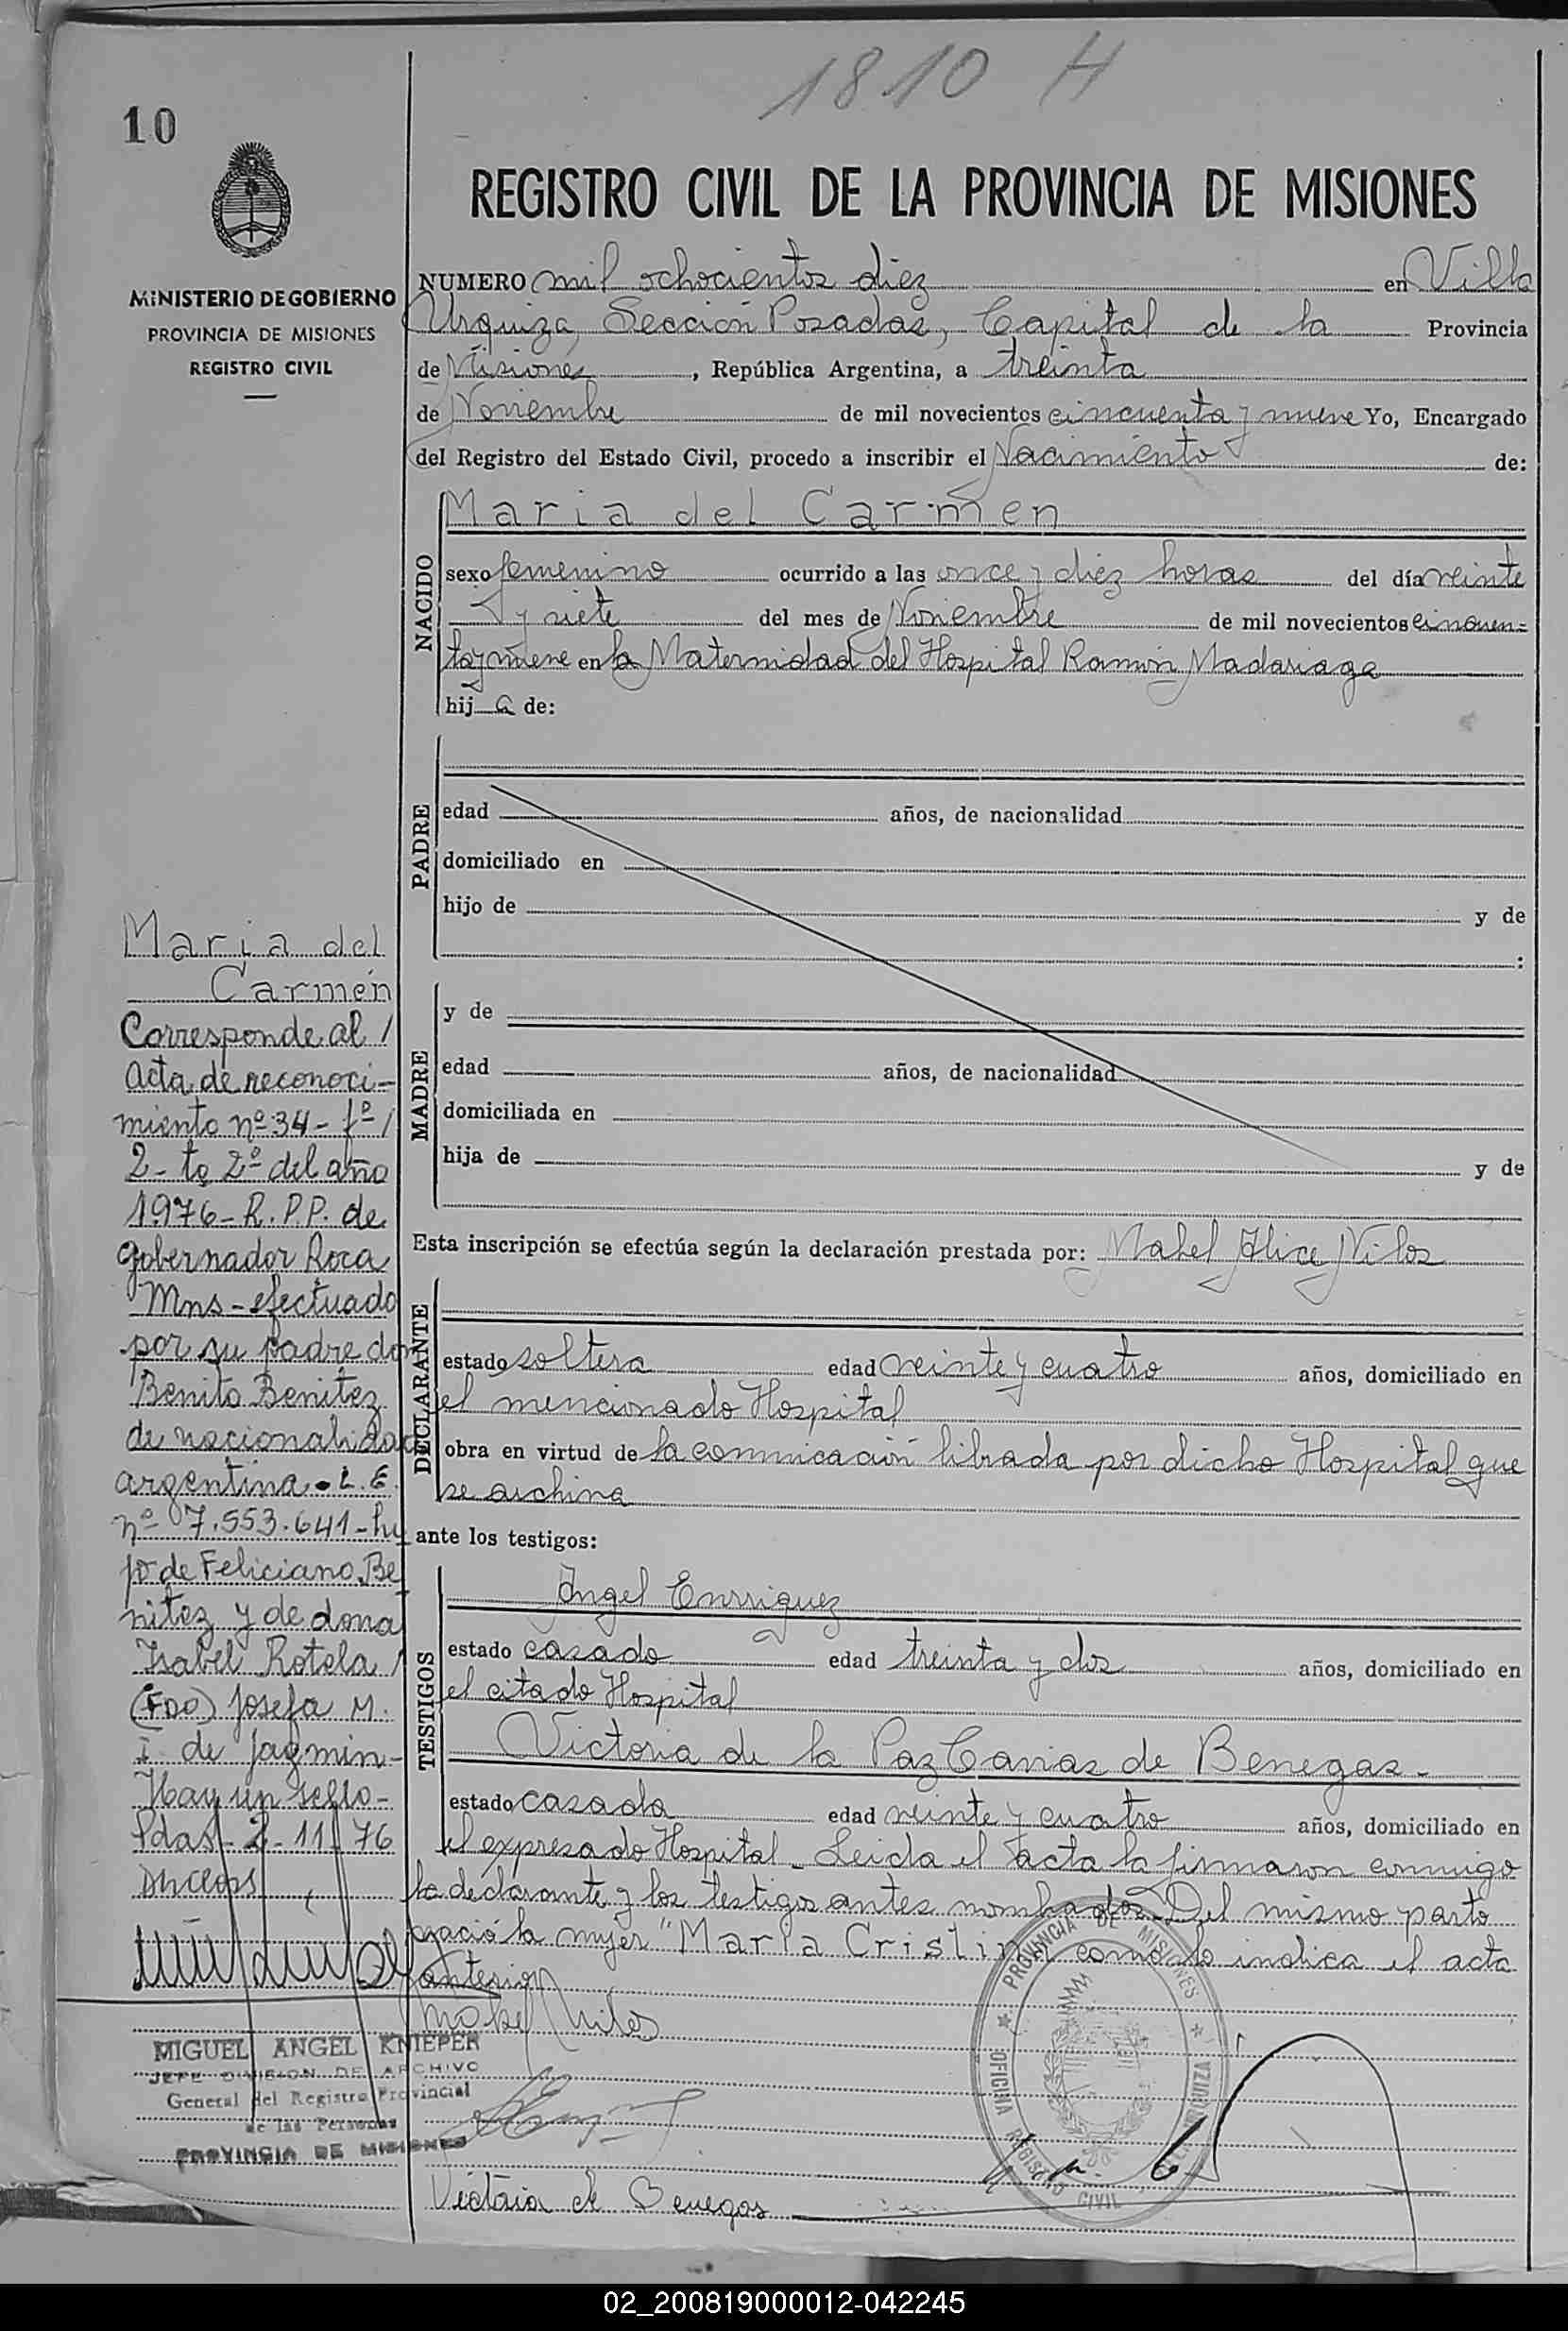 1810 H
10
REGISTRO CIVIL DE LA PROVINCIA DE MISIONES
MINISTERIO DE GOBIERNO
PROVINCIA DE MISIONES
REGISTRO CIVIL
NUMERO mil ochocientos diez en Villa
Urquiza, Sección Posadas, Capital de la Provincia
de Misiones, República Argentina, a treinta
de Noviembre de mil novecientos cincuenta y nueve Yo, Encargado
del Registro del Estado Civil, procedo a inscribir el Nacimiento de:
NACIDO
Maria del Carmen
sexo femenino ocurrido a las once y diez horas del día veinte
y siete del mes de Noviembre de mil novecientos cincuen=
ta y nueve en la Maternidad del Hospital Ramón Madariaga
hija de:
PADRE
edad años, de nacionalidad
domiciliado en
hijo de y de
:
MADRE
y de
edad años, de nacionalidad
domiciliada en
hija de y de
Esta inscripción se efectúa según la declaración prestada por: Mabel Alice Nilos
DECLARANTE
estado soltera edad veinte y cuatro años, domiciliado en
el mencionado Hospital
obra en virtud de la comunicación librada por dicho Hospital que
se archiva
ante los testigos:
TESTIGOS
Angel Enrriquez
estado casado edad treinta y dos años, domiciliado en
el citado Hospital
Victoria de la Paz Carias de Benegas.-
estado casada edad veinte y cuatro años, domiciliado en
el expresado Hospital - Leida el acta la firmaron conmigo
la declarante y los testigos antes nombrados. Del mismo parto
nació la mujer "Maria Cristina como lo indica el acta
anterior
Mabel Nilos
Victoria de Benegas
Maria del
Carmen
Corresponde al /
acta de reconoci-
miento nº 34 - fº /
2 - tº 2º del año
1976 - R.P.P. de
Gobernador Roca
Mns - efectuado
por su padre don
Benito Benitez
de nacionalidad
argentina. L.E.
nº 7.553.641 - hi
jo de Feliciano Be
nitez y de dona
Isabel Rotela /
(FDO) Josefa M.
I. de Jagmin -
Hay un sello -
Pdas - 2 - 11 - 76
MIGUEL ANGEL KNIEPER
JEFE DIVISION DE ARCHIVO
General del Registro Provincial
de las Personas
PROVINCIA DE MISIONES
PROVINCIA DE MISIONES
OFICINA REGISTRO CIVIL
02_200819000012-042245